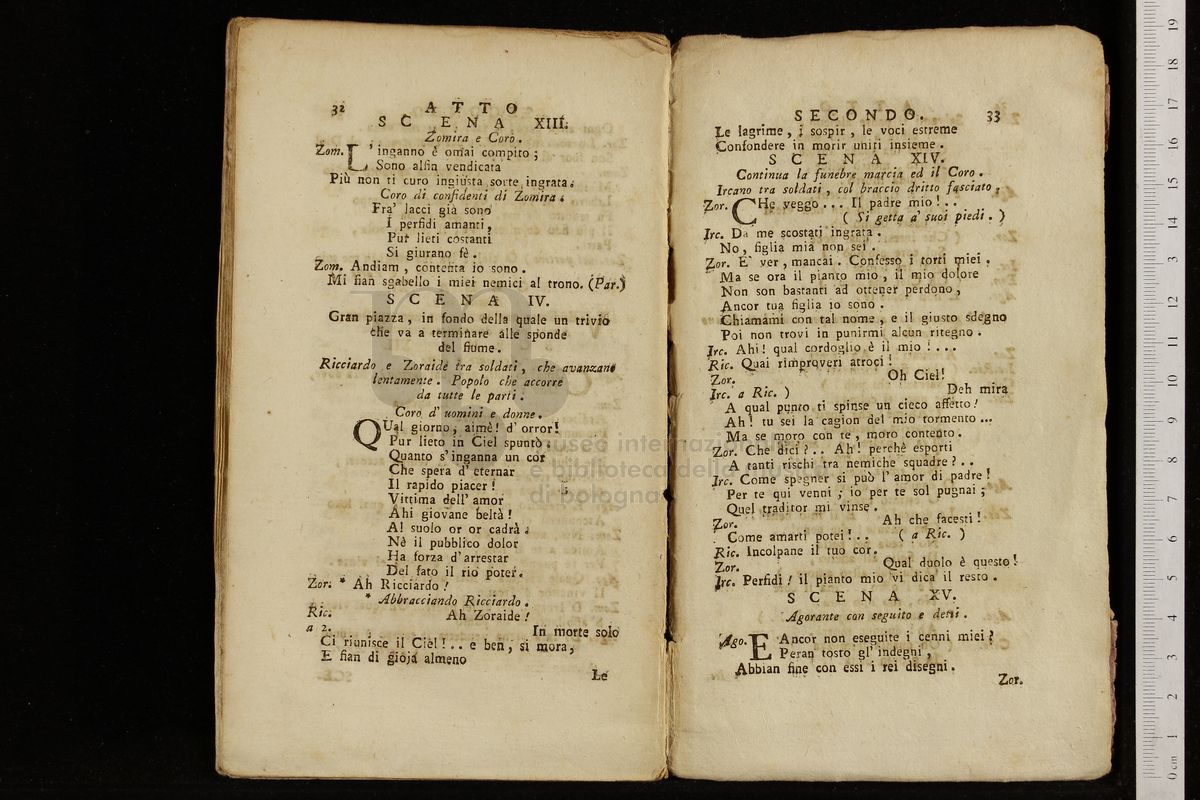 32 ATTO
SCENA XIII.
Zomira e Coro.
Zom. L'inganno è omai compito;
Sono alfin vendicata
Più non ti curo ingiusta sorte ingrata.
Coro di confidenti di Zomira.
Fra' lacci già sono
I perfidi amanti,
Pur lieti costanti
Si giurano fè.
Zom. Andiam, contenta io sono.
Mi fian sgabello i miei nemici al trono. (Par.)
SCENA IV.
Gran piazza, in fondo della quale un trivio
che va a terminare alle sponde
del fiume.
Ricciardo e Zoraide tra soldati, che avanzano
lentamente. Popolo che accorre
da tutte le parti.
Coro d' uomini e donne.
QUal giorno, aimè! d' orror!
Pur lieto in Ciel spuntò.
Quanto s' inganna un cor
Che spera d' eternar
Il rapido piacer!
Vittima dell' amor
Ahi giovane beltà!
Al suolo or or cadrà.
Nè il pubblico dolor
Ha forza d' arrestar
Del fato il rio poter.
Zor. * Ah Ricciardo!
* Abbracciando Ricciardo.
Ric. Ah Zoraide!
a 2. In morte solo
Ci riunisce il Ciel!.. e ben, si mora,
E fian di gioja almeno
Le
SECONDO. 33
Le lagrime, i sospir, le voci estreme
Confondere in morir uniti insieme.
SCENA XIV.
Continua la funebre marcia ed il Coro.
Ircano tra soldati, col braccio dritto fasciato.
Zor. CHe veggo... Il padre mio!..
( Si getta a' suoi piedi. )
Irc. Da me scostati ingrata.
No, figlia mia non sei.
Zor. E' ver, mancai. Confesso i torti miei.
Ma se ora il pianto mio, il mio dolore
Non son bastanti ad ottener perdono,
Ancor tua figlia io sono.
Chiamami con tal nome, e il giusto sdegno
Poi non trovi in punirmi alcun ritegno.
Irc. Ahi! qual cordoglio è il mio!...
Ric. Quai rimproveri atroci!
Zor. Oh Ciel!
Irc. a Ric. ) Deh mira
A qual punto ti spinse un cieco affetto!
Ah! tu sei la cagion del mio tormento...
Ma se moro con te, moro contento.
Zor. Che dici?.. Ah! perchè esporti
A tanti rischi tra nemiche squadre?..
Irc. Come spegner si può l' amor di padre!
Per te qui venni; io per te sol pugnai;
Quel traditor mi vinse.
Zor. Ah che facesti!
Come amarti potei!.. ( a Ric. )
Ric. Incolpane il tuo cor.
Zor. Qual duolo è questo!
Irc. Perfidi! il pianto mio vi dica il resto.
SCENA XV.
Agorante con seguito e detti.
Ago. E Ancor non eseguite i cenni miei?
Peran tosto gl' indegni,
Abbian fine con essi i rei disegni.
Zor.
museo internazionale
e biblioteca della musica
di bologna
0 cm 1 2 3 4 5 6 7 8 9 10 11 12 13 14 15 16 17 18 19